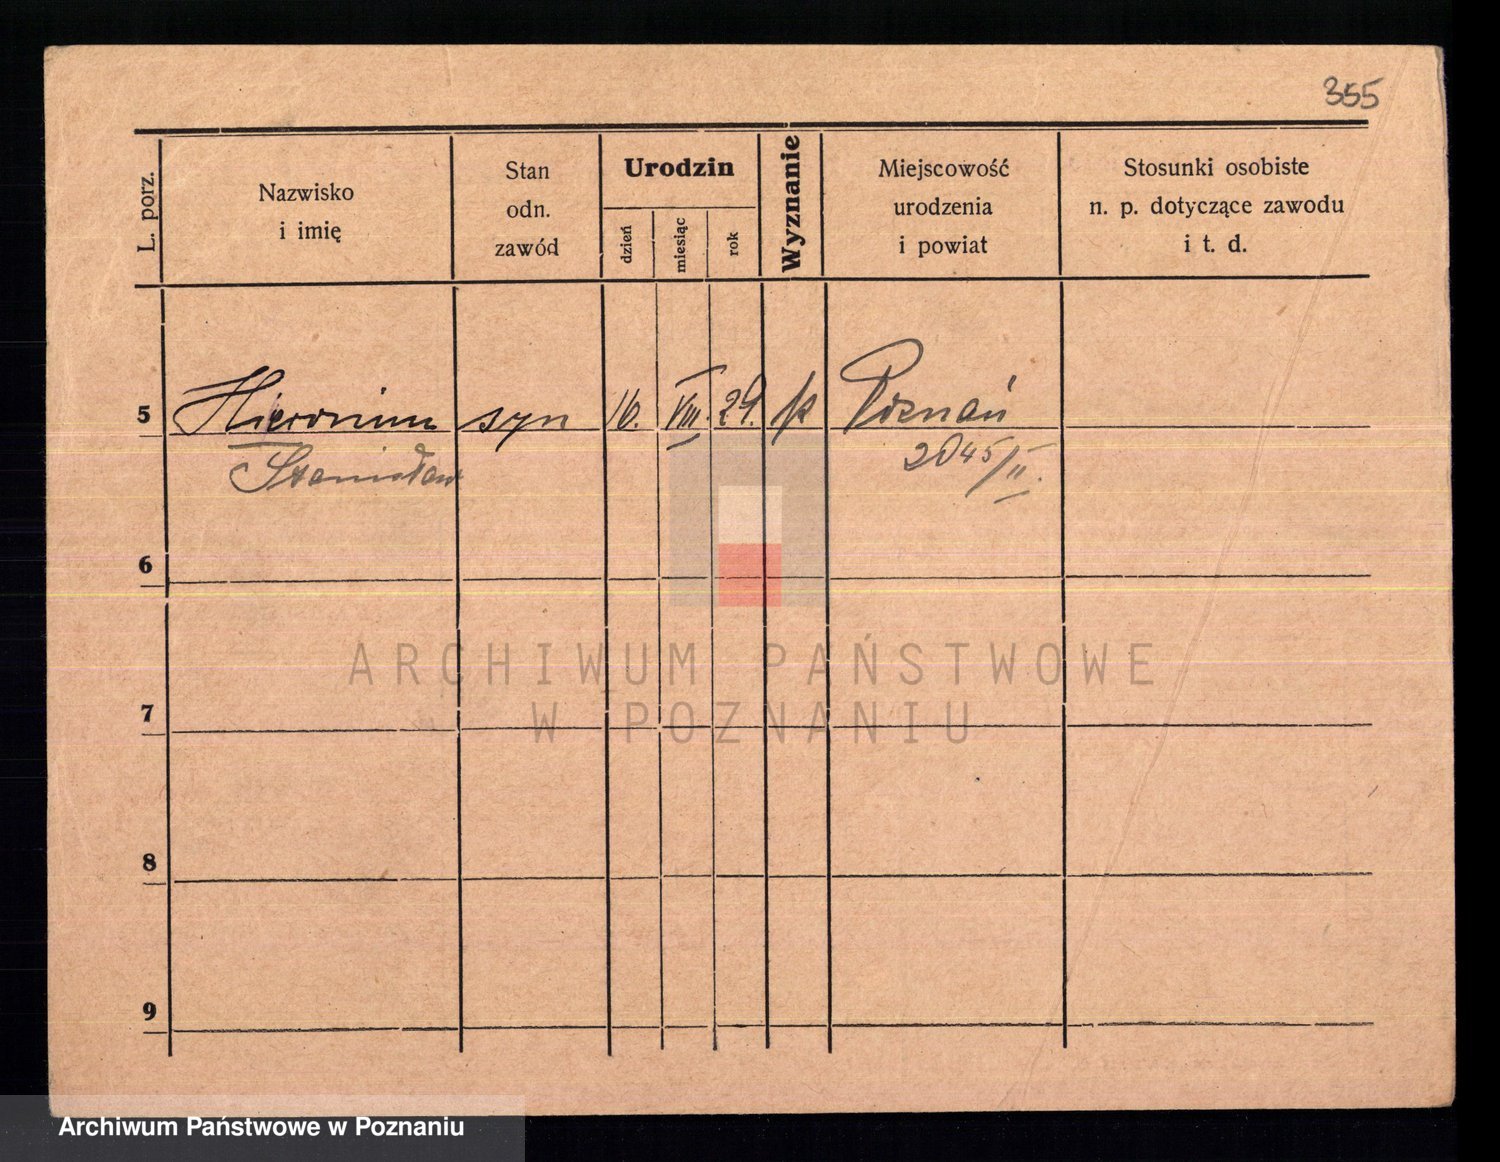 355
L. porz.
Nazwisko
i imię
Stan
odn.
zawód
Urodzin
dzień
miesiąc
rok
Wyznanie
Miejscowość
urodzenia
i powiat
Stosunki osobiste
n. p. dotyczące zawodu
i t. d.
5 Hieronim syn 16. VIII. 29. k Poznań
Stanisław 2045/II.
6
7
8
9
ARCHIWUM PAŃSTWOWE
W POZNANIU
Archiwum Państwowe w Poznaniu